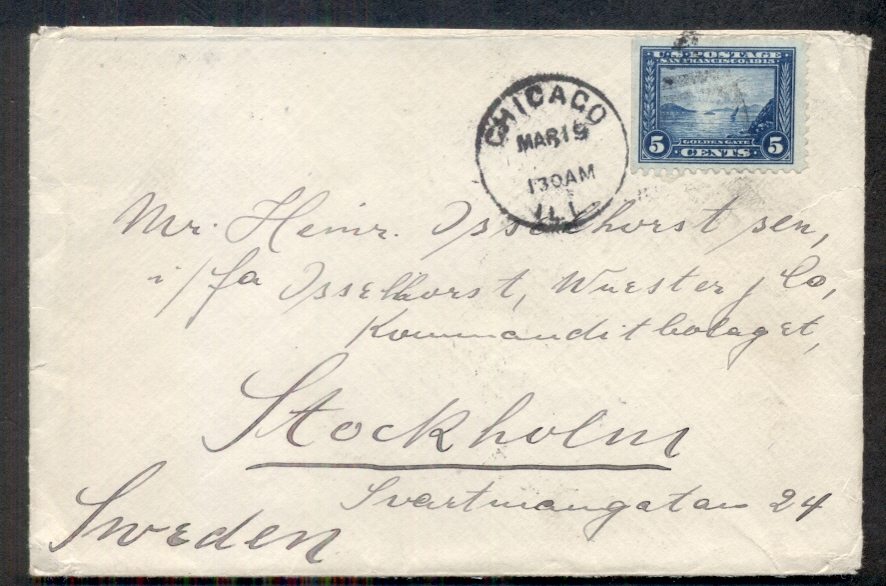 U.S. POSTAGE
SAN FRANCISCO, 1915
GOLDEN GATE
5 CENTS 5
CHICAGO
MAR 19
130 AM
ILL
Mr. Heinr. Isselhorst sen,
i/fa Isselhorst, Wuester & Co,
Kommanditbolaget,
Stockholm
Svartmangatan 24
Sweden